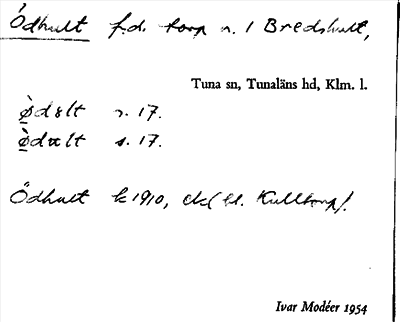 Ödhult f.d. torp u. / Bredshult,
Tuna sn, Tunaläns hd, Klm. l.
s. 17.
s. 17.
Ödhult k 1910, ek( bl. Kulltorp).
Ivar Modéer 1954